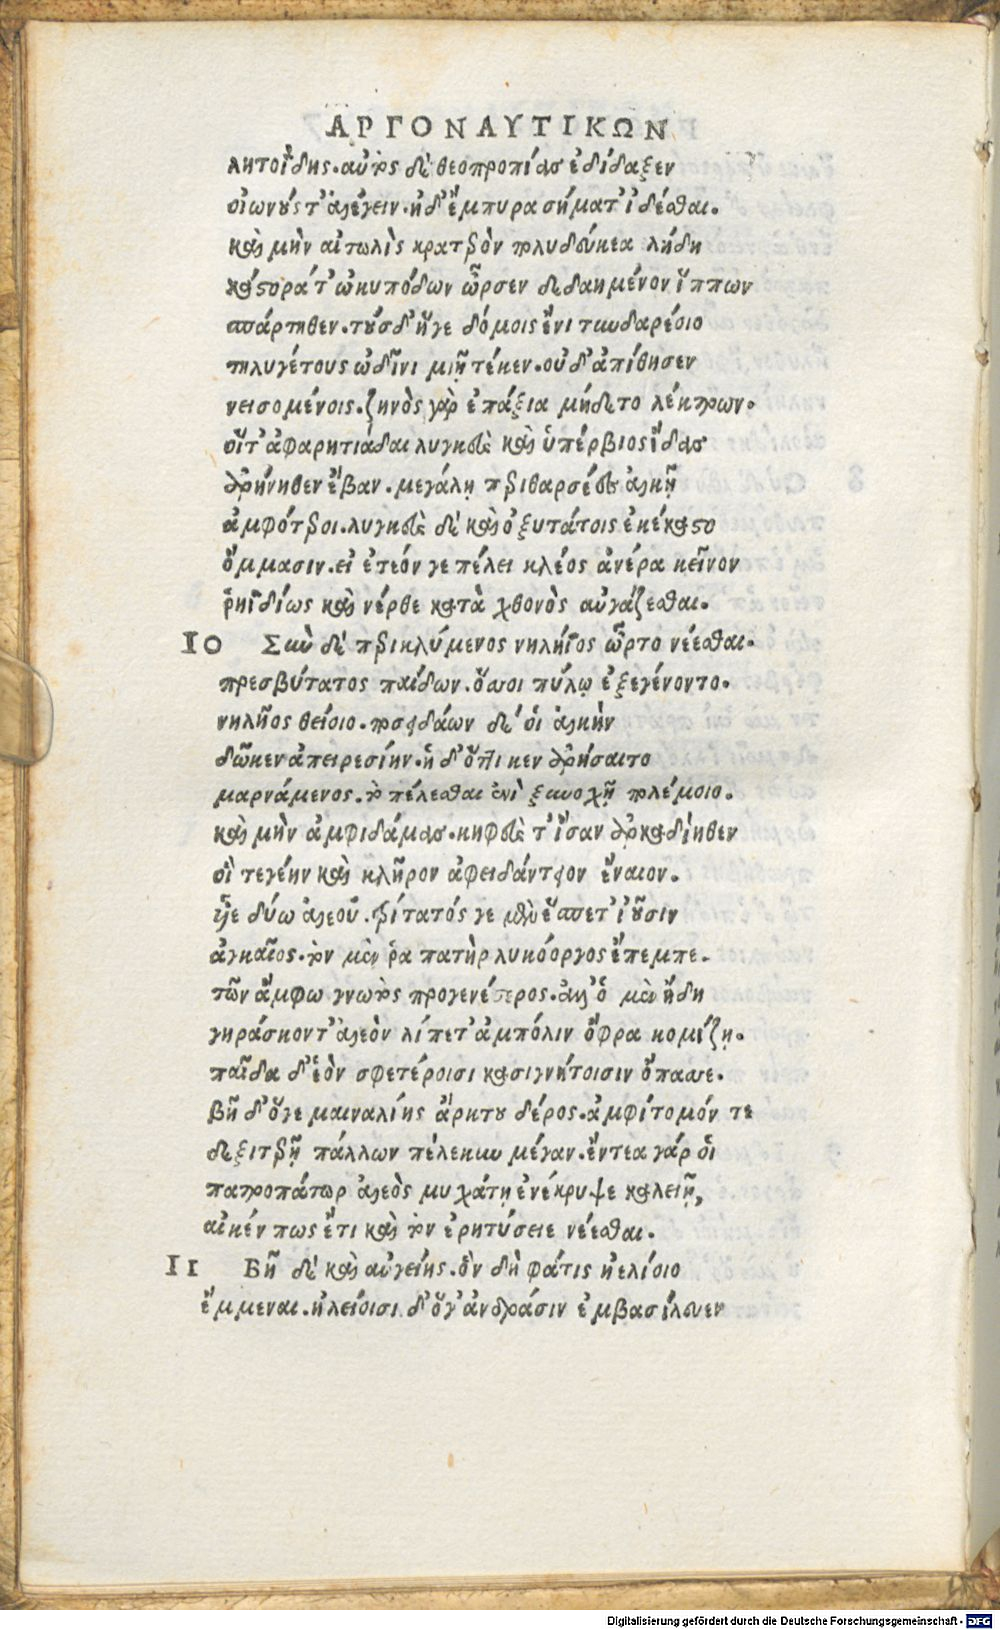 ΑΡΓΟΝΑΥΤΙΚΩΝ
λητοΐδης. αὐτὸς δὲ θεοπροπίας ἐδίδαξεν
οἰωνούς τ' ἀλέγειν. ἠδ' ἔμπυρα σήματ' ἰδέσθαι.
καὶ μὴν αἰτωλὶς κρατερὸν πολυδεύκεα λήδη
κάστορά τ' ὠκυπόδων ὦρσεν δεδαημένον ἵππων
σπάρτηθεν. τοὺς δ' ἥγε δόμοις ἔνι τυνδαρέοιο
τηλυγέτους ὠδῖνι μιῇ τέκεν. οὐδ' ἀπίθησεν
νεισομένοις. ζηνὸς γὰρ ἐπάξια μήδετο λέκτρων.
οἵ τ' ἀφαρητιάδαι λυγκεὺς καὶ ὑπέρβιος ἴδας
ἀρήνηθεν ἔβαν. μεγάλῃ περιθαρσέες ἀλκῇ
ἀμφότεροι. λυγκεὺς δὲ καὶ ὀξυτάτοις ἐκέκαστο
ὄμμασιν. εἰ ἐτεόν γε πέλει κλέος ἀνέρα κεῖνον
ῥηϊδίως καὶ νέρθε κατὰ χθονὸς αὐγάζεσθαι.
10 Σὺν δὲ περικλύμενος νηλήϊος ὦρτο νέεσθαι.
πρεσβύτατος παίδων. ὅσσοι πύλῳ ἐξεγένοντο.
νηλῆος θείοιο. ποσειδάων δέ οἱ ἀλκὴν
δῶκεν ἀπειρεσίην. ἠδ' ὅττι κεν ἀρήσαιτο
μαρνάμενος. τὸ πέλεσθαι ἐνὶ ξυνοχῇ πολέμοιο.
καὶ μὴν ἀμφιδάμας. κηφεύς τ' ἴσαν ἀρκαδίηθεν
οἳ τεγέην καὶ κλῆρον ἀφειδάντειον ἔναιον.
υἷε δύω ἀλεοῦ. τρίτατός γε μὲν ἕσπετ' ἰοῦσιν
ἀγκαῖος. τὸν μὲν ῥα πατὴρ λυκόοργος ἔπεμπε.
τῶν ἄμφω γνωτὸς προγενέστερος. ἀλλ' ὁ μὲν ἤδη
γηράσκοντ' ἀλεὸν λίπετ' ἀμπόλιν ὄφρα κομίζῃ.
παῖδα δ' ἑὸν σφετέροισι κασιγνήτοισιν ὄπασσε.
βῆ δ' ὅγε μαιναλίης ἄρκτου δέρος. ἀμφίτομόν τε
δεξιτερῇ πάλλων πέλεκυν μέγαν. ἔντεα γάρ οἱ
πατροπάτωρ ἀλεὸς μυχάτῃ ἐνέκρυψε καλειῇ,
αἴκέν πως ἔτι καὶ τὸν ἐρητύσειε νέεσθαι.
11 Βῆ δὲ καὶ αὐγείης. ὃν δὴ φάτις ἠελίοιο
ἔμμεναι. ἠλείοισι δ' ὅγ' ἀνδράσιν ἐμβασίλευεν
Digitalisierung gefördert durch die Deutsche Forschungsgemeinschaft - DFG